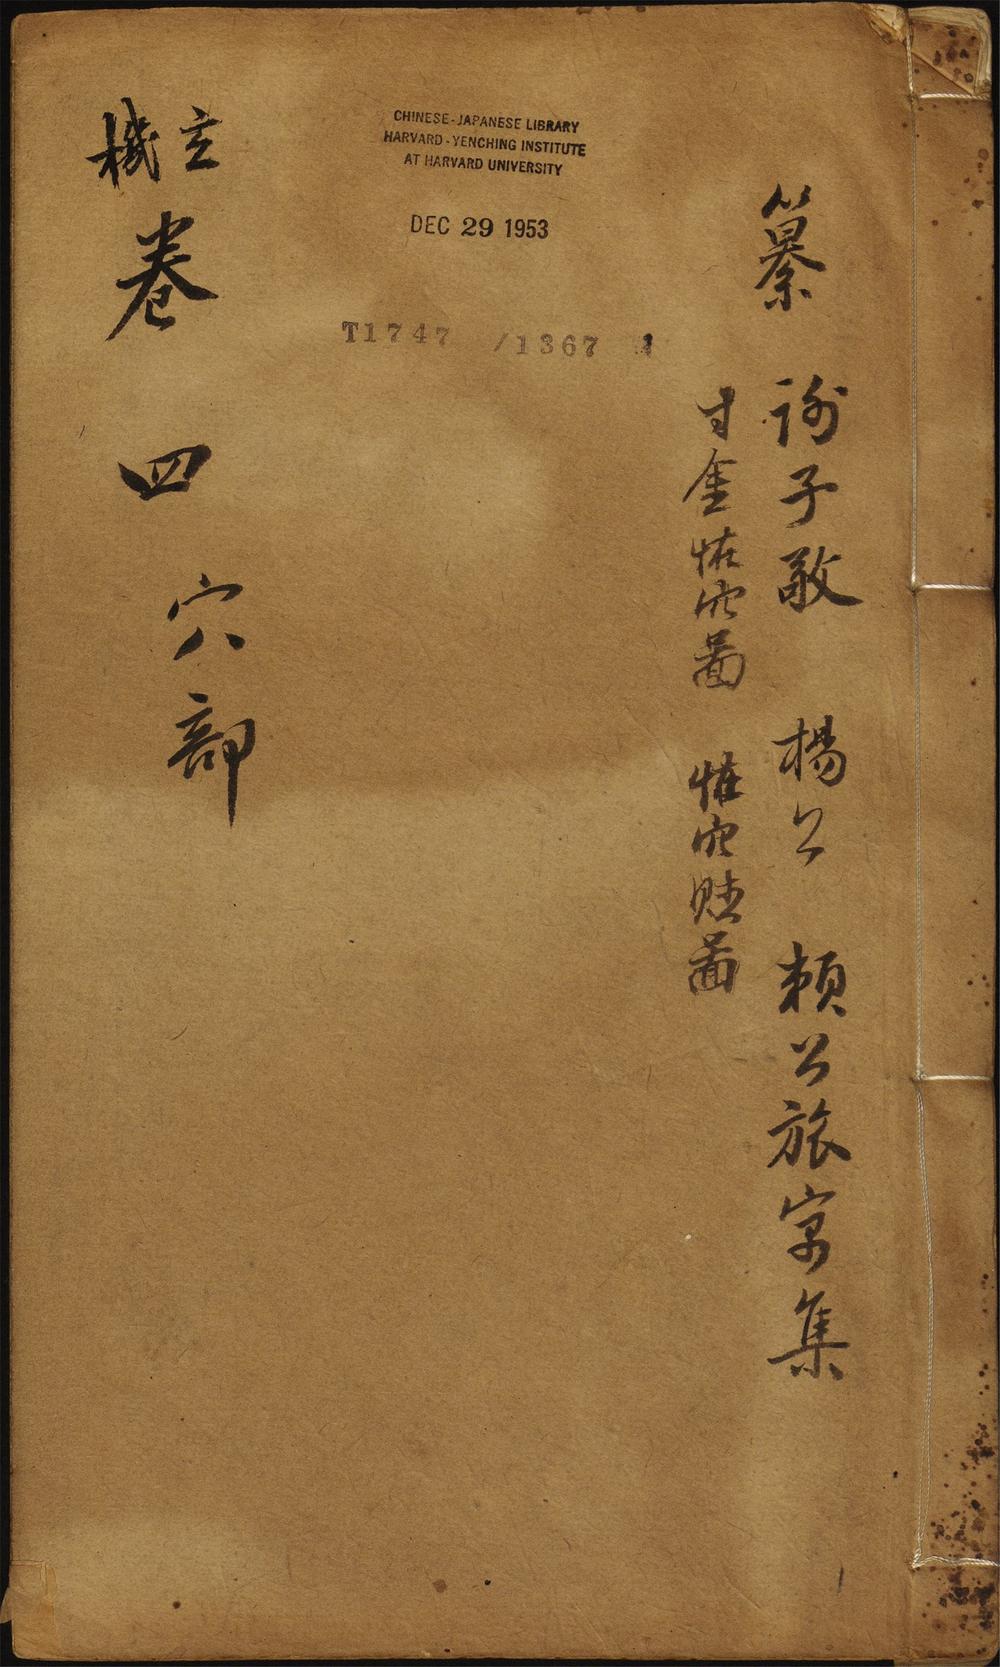 纂
謝子敬 楊公 頼公旅寓集
寸金怪穴圖 怪穴賍圖
CHINESE-JAPANESE LIBRARY
HARVARD-YENCHING INSTITUTE
AT HARVARD UNIVERSITY
DEC 29 1953
T1747 /1367
玄機
卷四 穴部